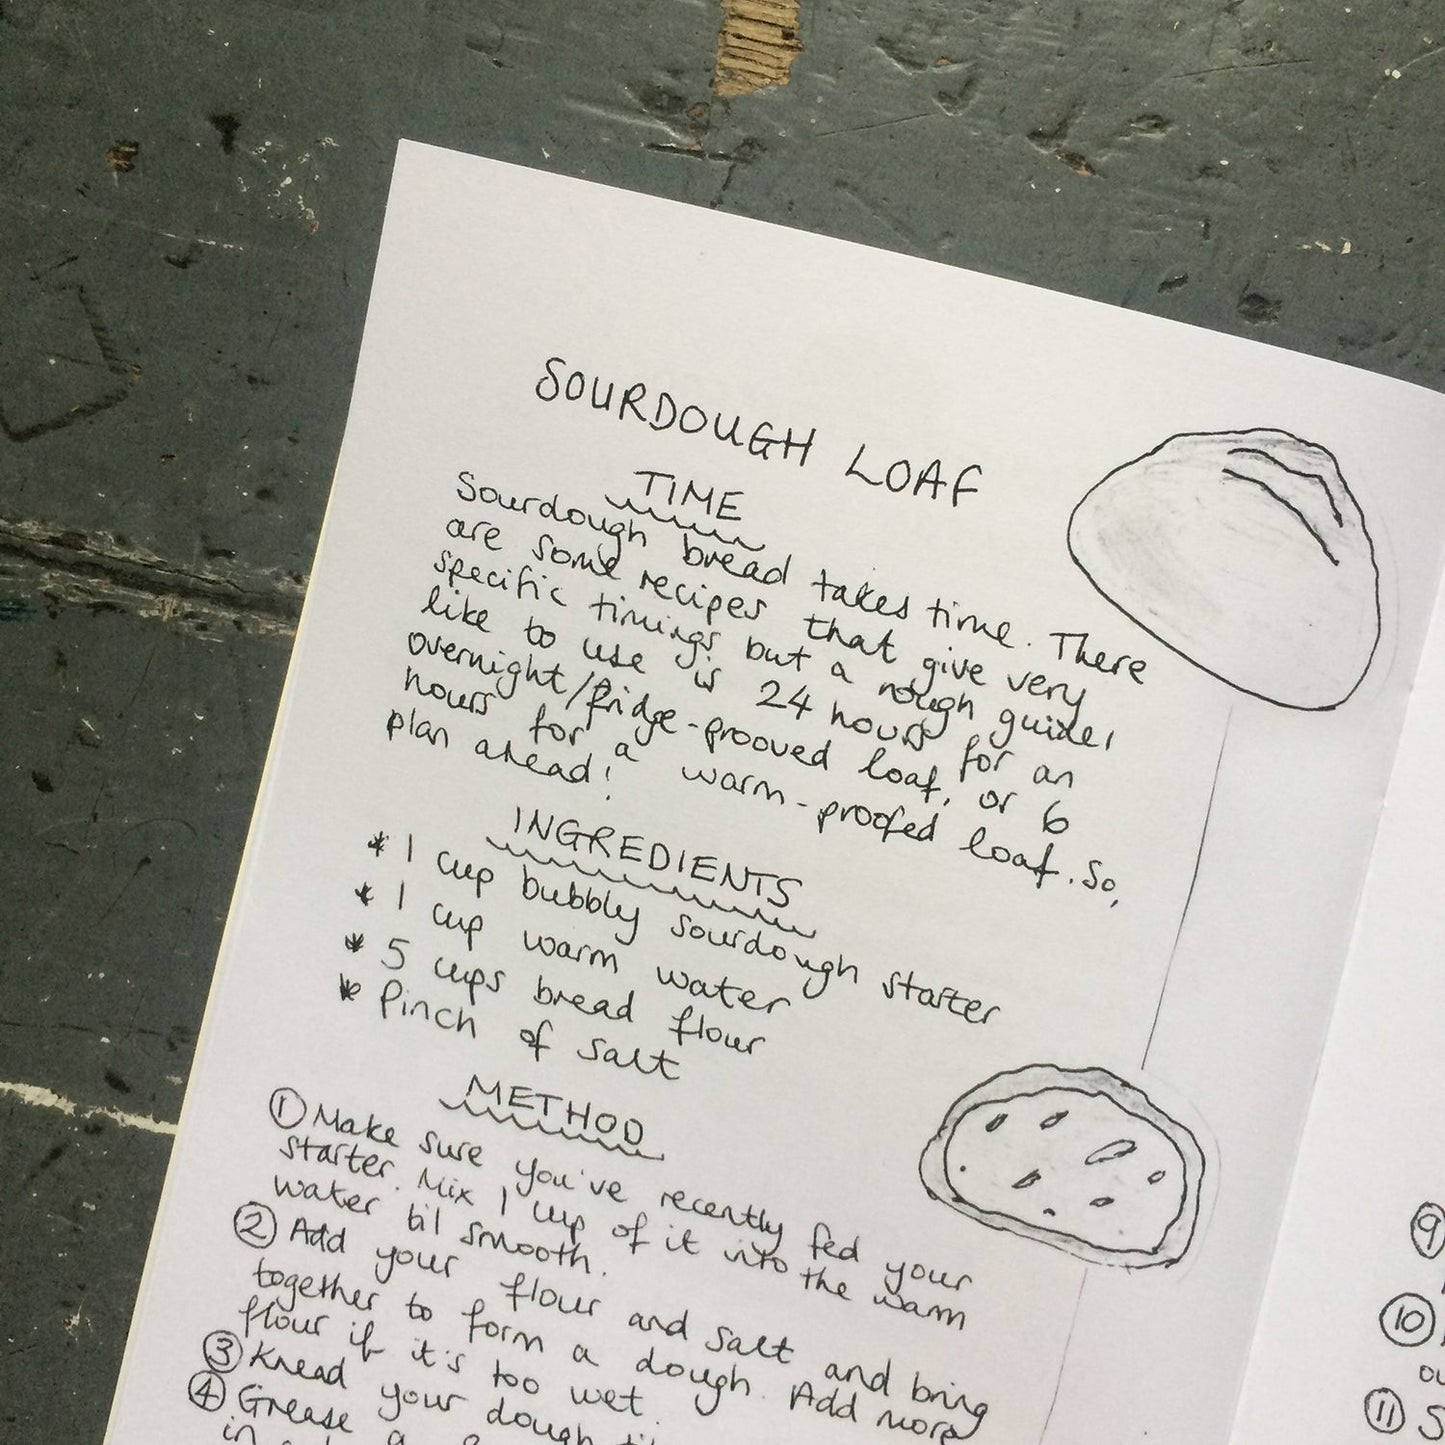 SOURDOUGH LOAF
TIME
Sourdough bread takes time. There
are some recipes that give very
specific timings but a rough guide I
like to use is 24 hours for an
overnight/fridge-prooved loaf, or 6
hours for a warm-proofed loaf. So,
plan ahead!
INGREDIENTS
* 1 cup bubbly sourdough starter
* 1 cup warm water
* 5 cups bread flour
* Pinch of salt
METHOD
① Make sure you've recently fed your
starter. Mix 1 cup of it into the warm
water til smooth.
② Add your flour and salt and bring
together to form a dough. Add more
flour if it's too wet.
③ Knead your dough
④ Grease a
in a
⑨
⑩
⑪ S